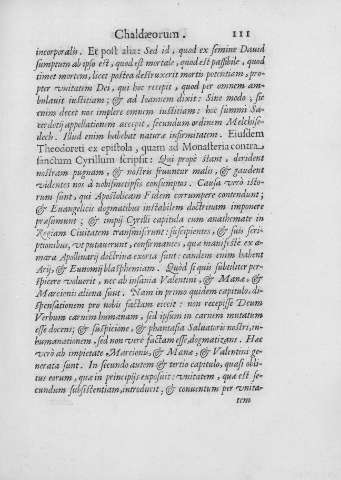 Chaldæorum. 111
incorporalis. Et post alia: Sed id, quod ex semine Dauid
sumptum ab ipso est, quod est mortale, quod est passibile, quod
timet mortem, licet postea destruxerit mortis potentiam, pro-
pter vnitatem Dei, qui hoc recepit, quod per omnem am-
bulauit iustitiam; & ad Ioannem dixit: Sine modo; sic
enim decet nos implere omnem iustitiam: hoc summi Sa-
cerdotij appellationem accepit, secundum ordinem Melchise-
dech. Illud enim habebat naturæ infirmitatem. Eiusdem
Theodoreti ex epistola, quam ad Monasteria contra
sanctum Cyrillum scripsit: Qui propè stant, derident
nostram pugnam, & nostris fruuntur malis, & gaudent
videntes nos à nobismetipsis consumptos. Causa verò isto-
rum sunt, qui Apostolicam Fidem corrumpere contendunt;
& Euangelicis dogmatibus instabilem doctrinam imponere
præsumunt; & impij Cyrilli capitula cum anathemate in
Regiam Ciuitatem transmiserunt: suscipientes, & suis scri-
ptionibus, vt putauerunt, confirmantes, quæ manifestè ex a-
mara Apollinarij doctrina exorta sunt: eandem enim habent
Arij, & Eunomij blasphemiam. Quòd si quis subtiliter per-
spicere voluerit, nec ab insania Valentini, & Manæ, &
Marcionis aliena sunt. Nam in primo quidem capitulo, di-
spensationem pro nobis factam eiecit: non recepisse Deum
Verbum carnem humanam, sed ipsum in carnem mutatum
esse docens; & suspicione, & phantasia Saluatoris nostri, in-
humanationem, sed non verè factam esse, dogmatizans. Hæc
verò ab impietate Marcionis, & Manæ, & Valentini ge-
nerata sunt. In secundo autem & tertio capitulo, quasi obli-
tus eorum, quæ in principijs exposuit: vnitatem, quæ est se-
cundum subsistentiam, introducit, & conuentum per vnita-
tem